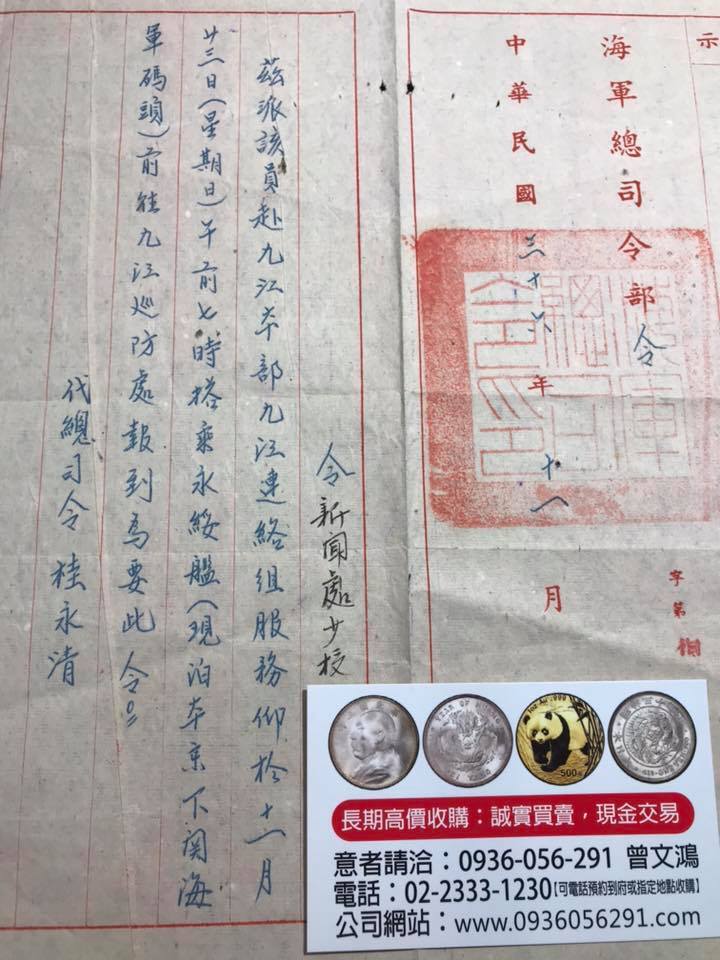 示
海軍總司令部令
中華民國三十六年十一月
字第
令新聞處少校
茲派該員赴九江本部九江連絡組服務仰於十一月
廿三日(星期日)午前七時搭乘永綏艦(現泊本京下関海
軍碼頭)前往九江巡防處報到為要此令。
代總司令桂永清
500元
長期高價收購：誠實買賣，現金交易
意者請洽：0936-056-291 曾文鴻
電話：02-2333-1230【可電話預約到府或指定地點收購】
公司網站：www.0936056291.com